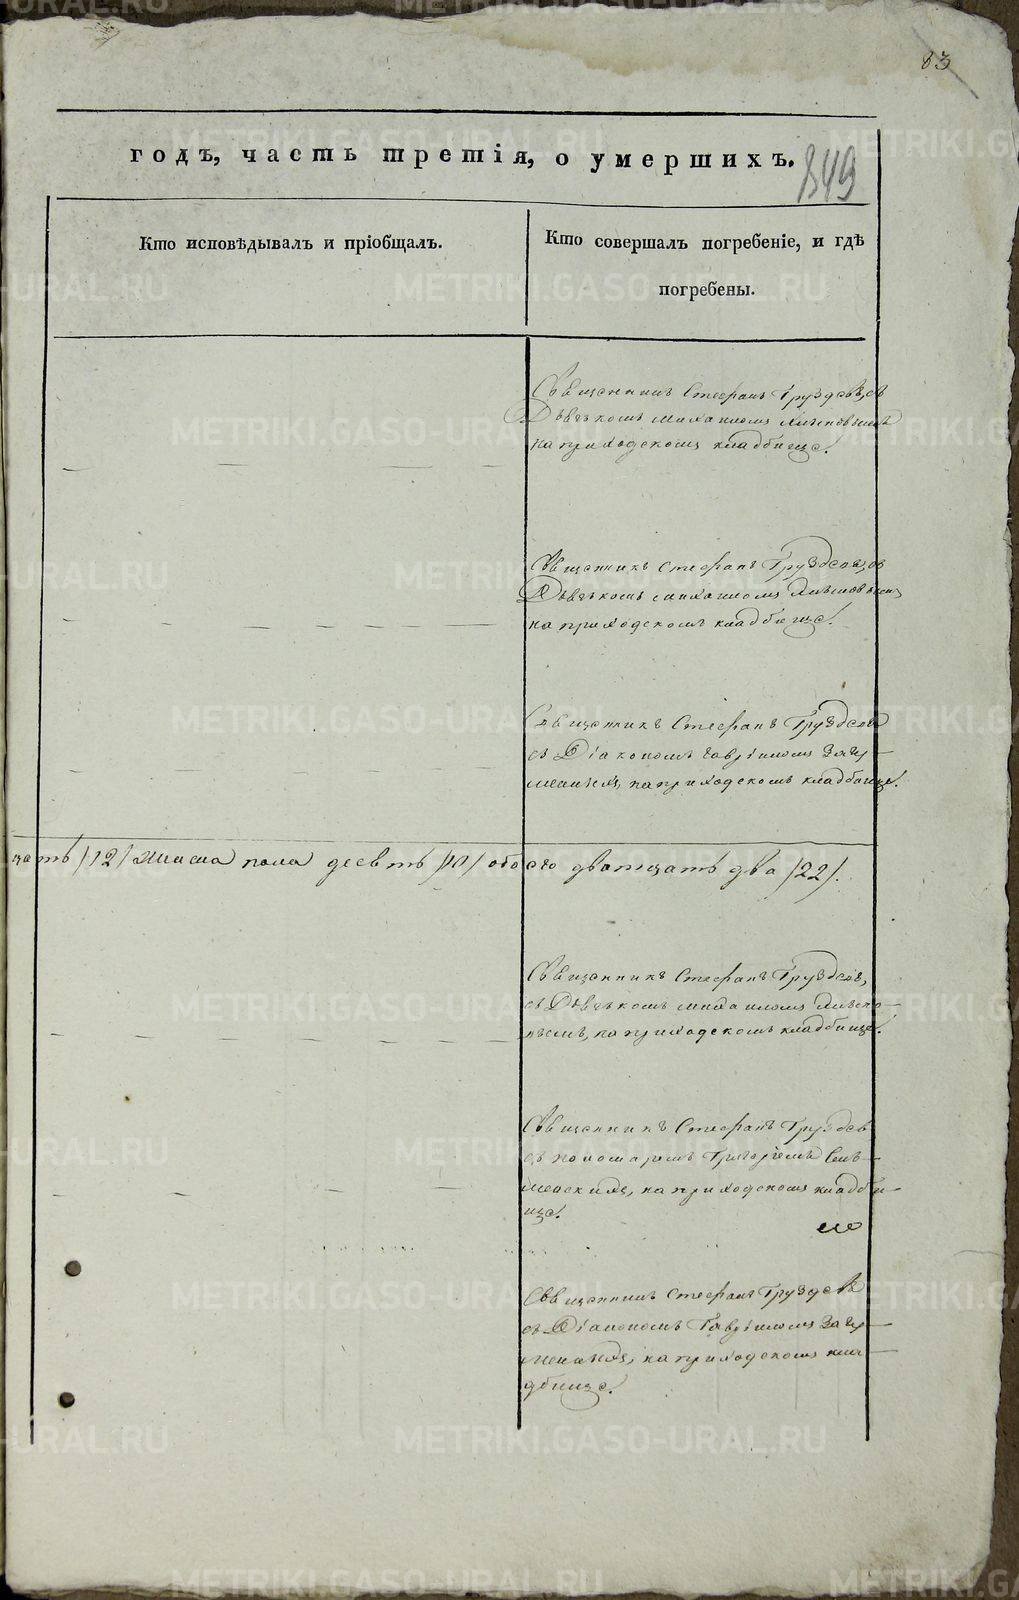 83
годъ, часть третія, о умершихъ.
849
Кто исповѣдывалъ и пріобщалъ.
Кто совершалъ погребеніе, и гдѣ
погребены.
Священникъ Стефанъ Груздевъ, съ
Дьячькомъ Михаиломъ
на приходскомъ кладбище.
Священникъ Стефанъ Груздевъ, съ
Дьячькомъ Михаиломъ
на приходскомъ кладбище.
Священникъ Стефанъ Груздевъ
съ Діакономъ Гавріиломъ
на приходскомъ кладбище.
цать /12/ женска пола десеть /10/ обоего дватцать два /22/.
Священникъ Стефанъ Груздевъ,
съ Дьячькомъ Михаиломъ
на приходскомъ кладбище.
Священникъ Стефанъ Груздевъ
съ пономаремъ Григоріемъ
на приходскомъ кладби-
ще.
Священникъ Стефанъ Груздевъ
съ Діакономъ Гавріиломъ
на приходскомъ кла-
дбище.
METRIKI.GASO-URAL.RU